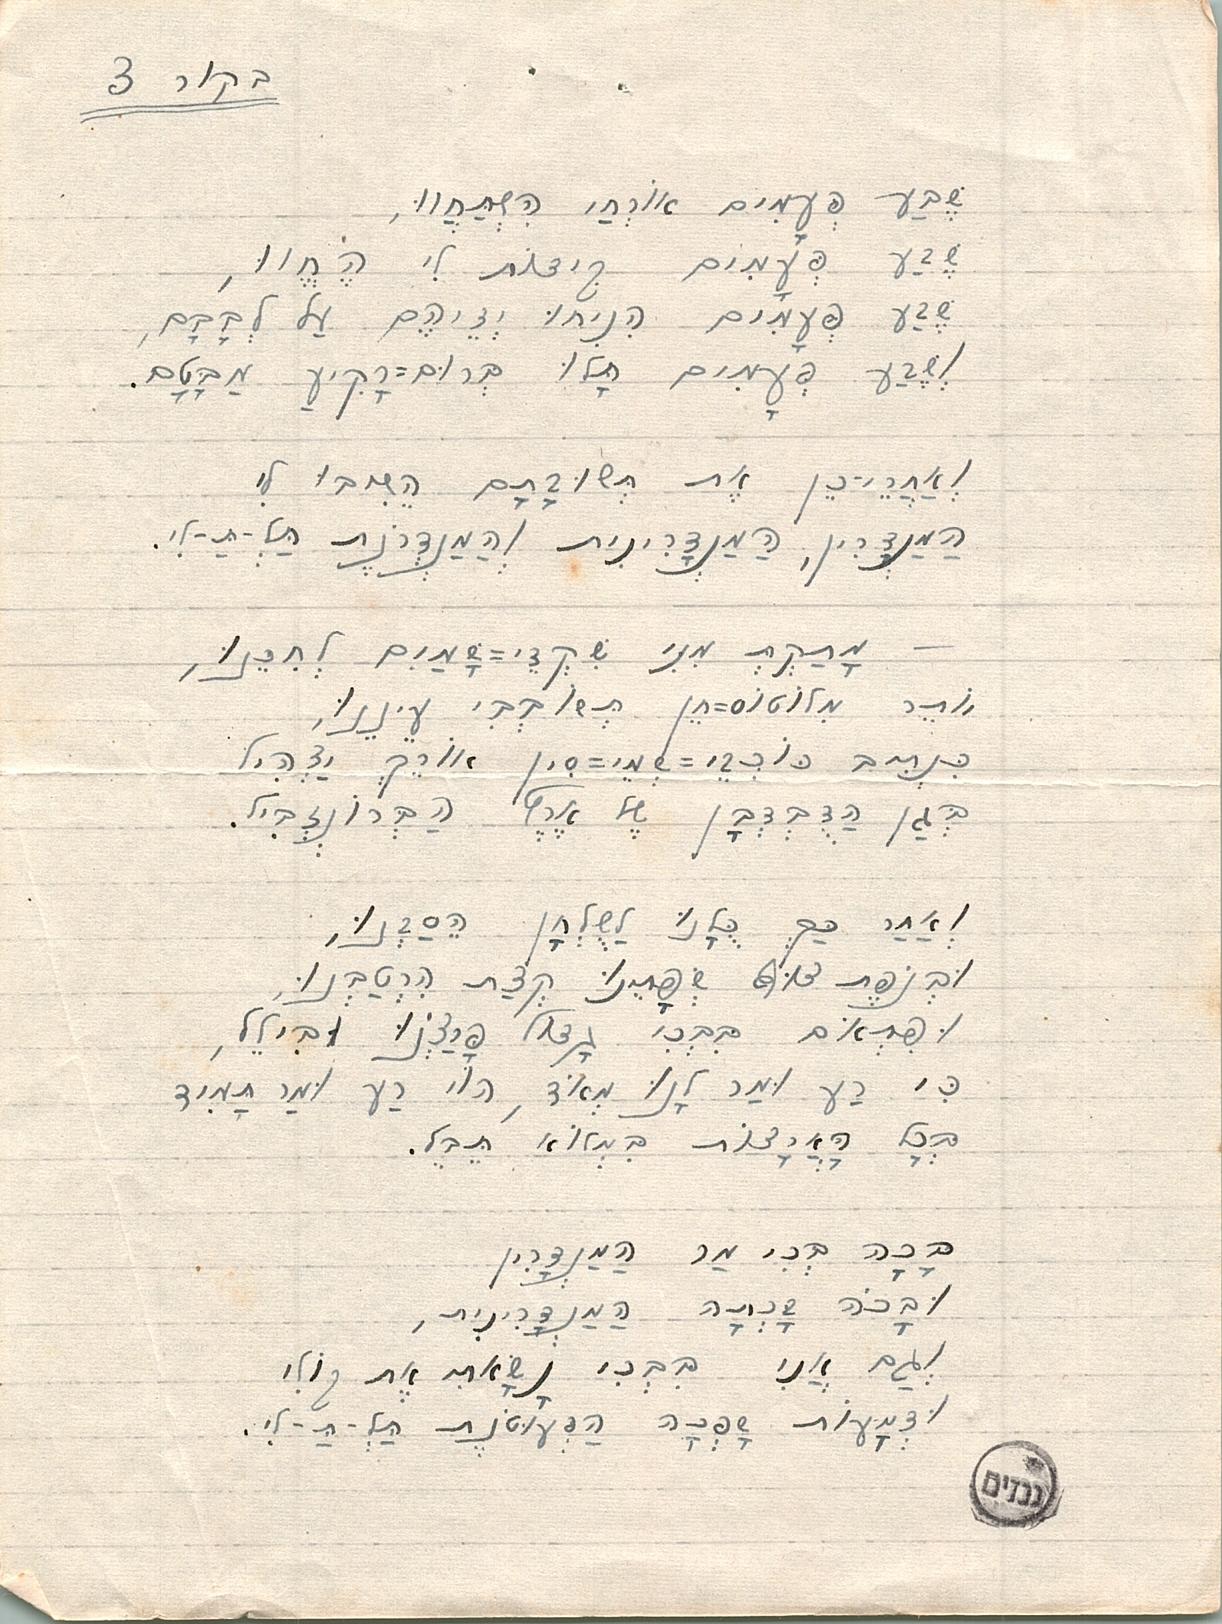 בקור 3
שֶׁבַע פְּעָמִים אוֹרְחַי הִשְׁתַּחֲווּ,
שֶׁבַע פְּעָמִים קִידוֹת לִי הֶחֱווּ,
שֶׁבַע פְּעָמִים הִנִּיחוּ יְדֵיהֶם עַל לְבָבָם,
וְשֶׁבַע פְּעָמִים תָּלוּ בְּרוּם=רָקִיעַ מַבָּטָם.
וְאַחֲרֵי-כֵן אֶת תְּשׁוּבָתָם הֵשִׁיבוּ לִי
הַמַּנְדָּרִין, הַמַּנְדָּרִינִית וְהַמַּנְדְּרֹנֶת תַּלְ-תַּ-לִי.
— מָתַקְתְּ מִנִּי שִׁקְדֵּי=שָׁמַיִם לְחִכֵּנוּ,
יוֹתֵר מִלוֹטוֹס=חֵן תְּשׁוֹבְבִי עֵינֵנוּ,
כִּנְתִיב כּוֹכְבֵי=שְׁמֵי=סִין אוֹרֵךְ יַצְהִיל
בְּגַן הַדֻּבְדְּבָן שֶׁל אֶרֶץ הַבְּרוֹנְזְבִיל.
וְאַחַר כַּךְ כֻּלָּנוּ לַשֻּׁלְחָן הֵסַבְנוּ,
וּבְנֹפֶת צוּף שְׂפָתֵינוּ קְצָת הִרְטַבְנוּ,
וּפִתְאֹם בִּבְכִי גָדוֹל פָּרַצְנוּ וּבִילֵל,
כִּי רַע וּמַר לָנוּ מְאֹד, הוֹי רַע וּמַר תָּמִיד
בְּכָל הָאֲרָצוֹת בִּמְלוֹא תֵּבֵל.
בָּכָה בְּכִי מַר הַמַּנְדָּרִין
וּבָכֹה שָׁכְתָה הַמַּנְדָּרִינִית,
וְגַם אֲנִי בִּבְכִי נָשָׂאתִי אֶת קוֹלִי
וּדְמָעוֹת שָׁפְכָה הַפְּעוּטֹנֶת תַּלְ-תַּ-לִי.
גנזים